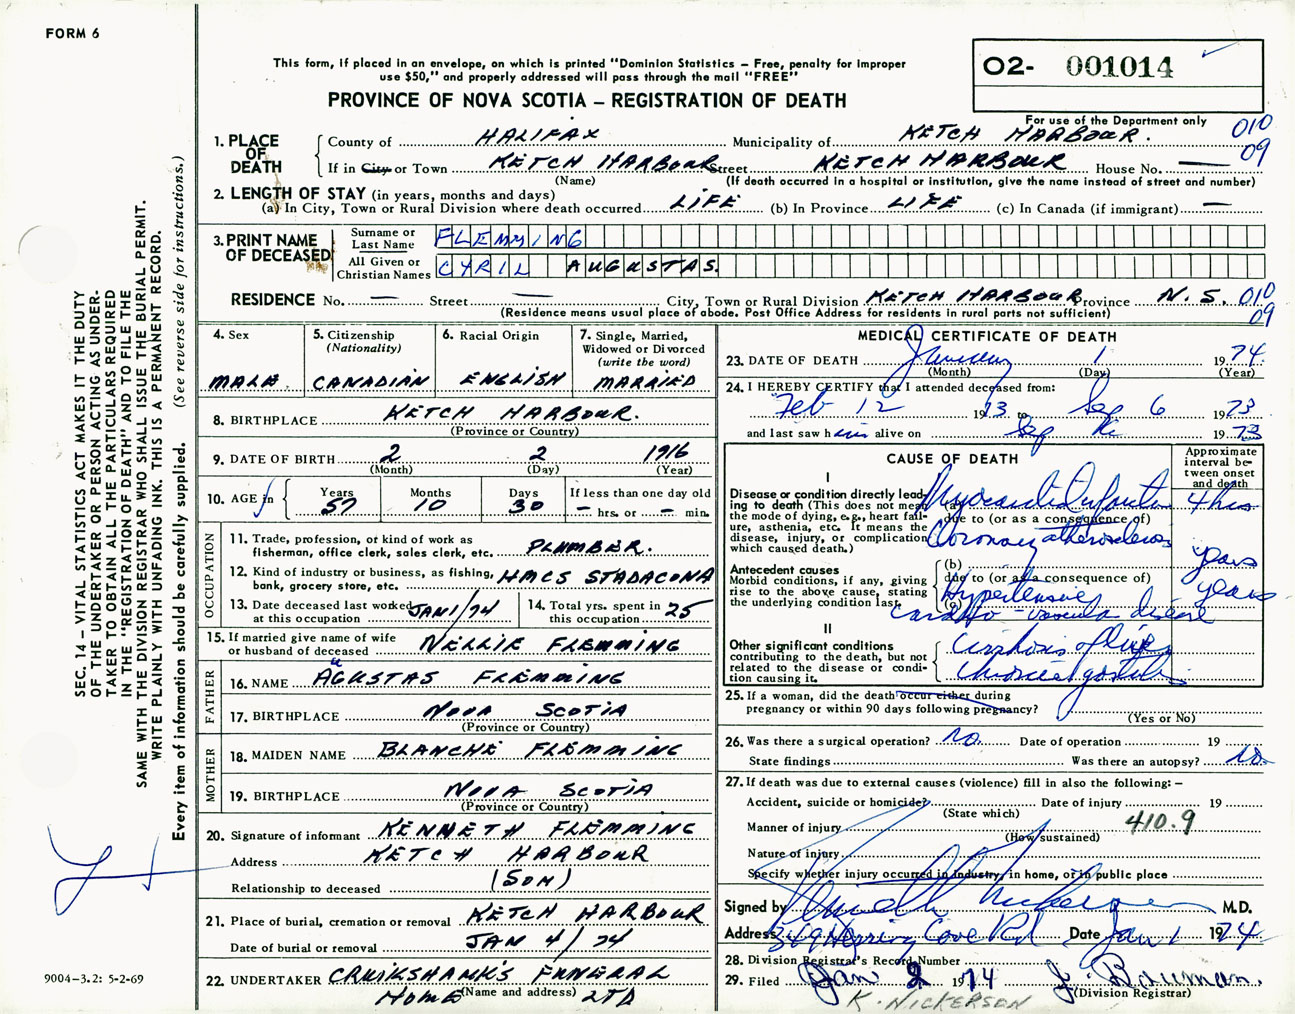 FORM 6
This form, if placed in an envelope, on which is printed "Dominion Statistics – Free, penalty for improper
use $50," and properly addressed will pass through the mail "FREE"
PROVINCE OF NOVA SCOTIA – REGISTRATION OF DEATH
O2- 001014
For use of the Department only
010
09
1. PLACE OF DEATH
County of HALIFAX Municipality of KETCH HARBOUR.
If in City or Town KETCH HARBOUR Street KETCH HARBOUR House No. —
(Name) (If death occurred in a hospital or institution, give the name instead of street and number)
2. LENGTH OF STAY (in years, months and days)
(a) In City, Town or Rural Division where death occurred LIFE (b) In Province LIFE (c) In Canada (if immigrant) —
3. PRINT NAME OF DECEASED
Surname or Last Name FLEMMING
All Given or Christian Names CYRIL AUGUSTAS.
RESIDENCE No. — Street — City, Town or Rural Division KETCH HARBOUR Province N.S. 010
09
(Residence means usual place of abode. Post Office Address for residents in rural parts not sufficient)
4. Sex
MALE
5. Citizenship
(Nationality)
CANADIAN
6. Racial Origin
ENGLISH
7. Single, Married,
Widowed or Divorced
(write the word)
MARRIED
8. BIRTHPLACE KETCH HARBOUR.
(Province or Country)
9. DATE OF BIRTH 2 2 1916
(Month) (Day) (Year)
10. AGE in
Years Months Days If less than one day old
57 10 30 – hrs. or – min.
OCCUPATION
11. Trade, profession, or kind of work as
fisherman, office clerk, sales clerk, etc. PLUMBER.
12. Kind of industry or business, as fishing,
bank, grocery store, etc. HMCS STADACONA
13. Date deceased last worked
at this occupation JAN 1/74
14. Total yrs. spent in
this occupation 25
15. If married give name of wife
or husband of deceased NELLIE FLEMMING
FATHER
16. NAME AUGUSTAS FLEMMING
17. BIRTHPLACE NOVA SCOTIA
(Province or Country)
MOTHER
18. MAIDEN NAME BLANCHE FLEMMING
19. BIRTHPLACE NOVA SCOTIA
(Province or Country)
20. Signature of informant KENNETH FLEMMING
Address KETCH HARBOUR
Relationship to deceased (SON)
21. Place of burial, cremation or removal KETCH HARBOUR
Date of burial or removal JAN 4/74
22. UNDERTAKER CRUIKSHANK'S FUNERAL
HOME LTD
(Name and address)
MEDICAL CERTIFICATE OF DEATH
23. DATE OF DEATH January 1 1974
(Month) (Day) (Year)
24. I HEREBY CERTIFY that I attended deceased from:
Feb 12 1973 to Sep 6 1973
and last saw him alive on Sep 1973
CAUSE OF DEATH
Approximate
interval be-
tween onset
and death
I
Disease or condition directly lead-
ing to death (This does not mean
the mode of dying, e.g., heart fail-
ure, asthenia, etc. It means the
disease, injury, or complication
which caused death.)
(a) Myocardial Infarction 4 hrs
due to (or as a consequence of)
Coronary atherosclerosis
Antecedent causes
Morbid conditions, if any, giving
rise to the above cause, stating
the underlying condition last.
(b) years
due to (or as a consequence of)
(c) Hypertensive years
cardio-vascular disease
II
Other significant conditions
contributing to the death, but not
related to the disease or condi-
tion causing it.
Cirrhosis of liver
Chronic gastritis
25. If a woman, did the death occur either during
pregnancy or within 90 days following pregnancy?
(Yes or No)
26. Was there a surgical operation? no. Date of operation 19
State findings Was there an autopsy? No.
27. If death was due to external causes (violence) fill in also the following: –
Accident, suicide or homicide? Date of injury 19
(State which)
Manner of injury 410.9
(How sustained)
Nature of injury
Specify whether injury occurred in industry, in home, or in public place
Signed by M.D.
Address 349 Herring Cove Rd Date Jan 1 1974
28. Division Registrar's Record Number
29. Filed Jan 2 1974 J. Bauman.
(Division Registrar)
K. NICKERSON
SEC. 14 – VITAL STATISTICS ACT MAKES IT THE DUTY
OF THE UNDERTAKER OR PERSON ACTING AS UNDER-
TAKER TO OBTAIN ALL THE PARTICULARS REQUIRED
IN THE "REGISTRATION OF DEATH" AND TO FILE THE
SAME WITH THE DIVISION REGISTRAR WHO SHALL ISSUE THE BURIAL PERMIT.
WRITE PLAINLY WITH UNFADING INK. THIS IS A PERMANENT RECORD.
Every item of information should be carefully supplied. (See reverse side for instructions.)
9004-3.2: 5-2-69